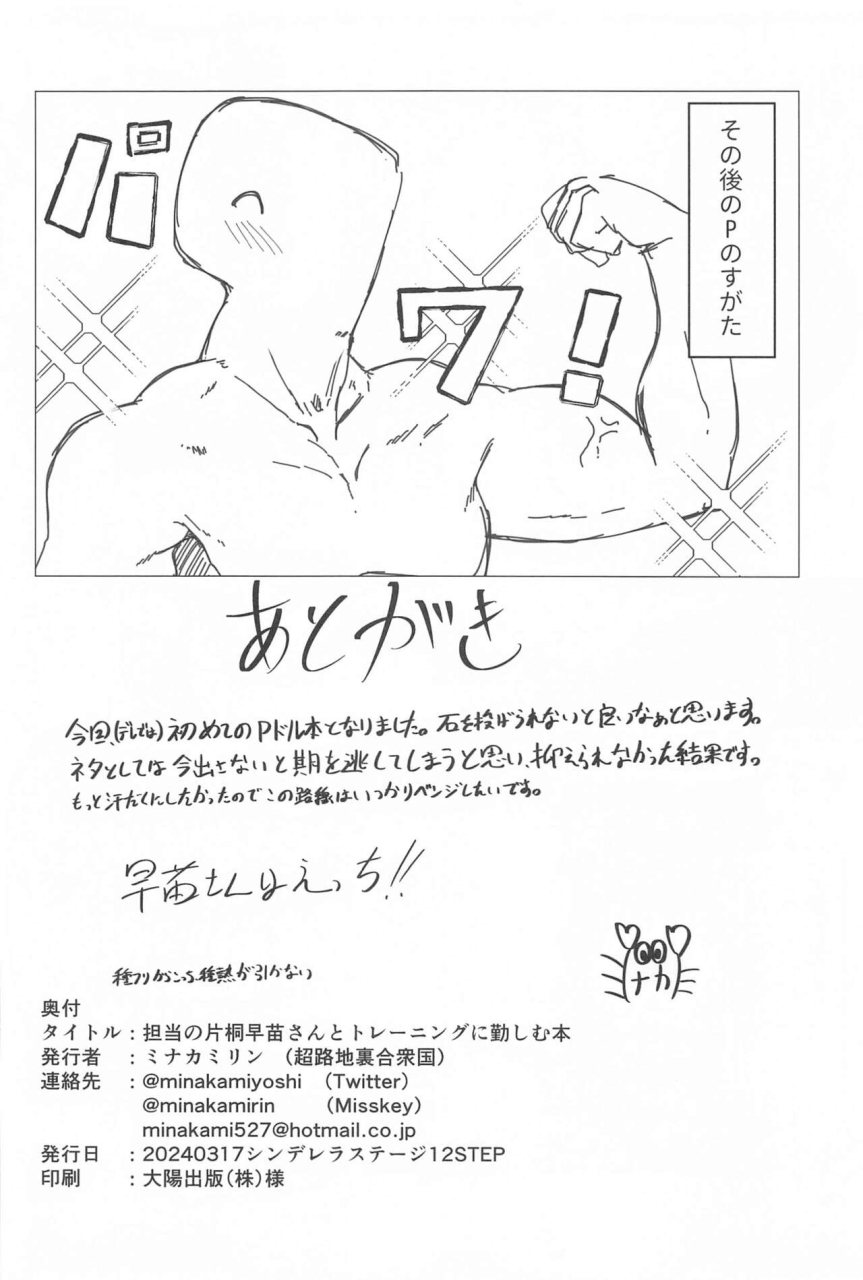 その後のPのすがた
パワ！
あとがき
今回、(デレでは)初めてのPドル本となりました。石を投げられないと良いなぁと思います。
ネタとしては今出さないと期を逃してしまうと思い、抑えられなかった結果です。
もっと汗だくにしたかったのでこの路線はいつかリベンジしたいです。
早苗さんはえっち!!
ナカ
種フリからこっち、種熱が引かない
奥付
タイトル：担当の片桐早苗さんとトレーニングに勤しむ本
発行者　：ミナカミリン　（超路地裏合衆国）
連絡先　：@minakamiyoshi　（Twitter）
@minakamirin　　（Misskey）
minakami527@hotmail.co.jp
発行日　：20240317シンデレラステージ12STEP
印刷　　：大陽出版（株）様